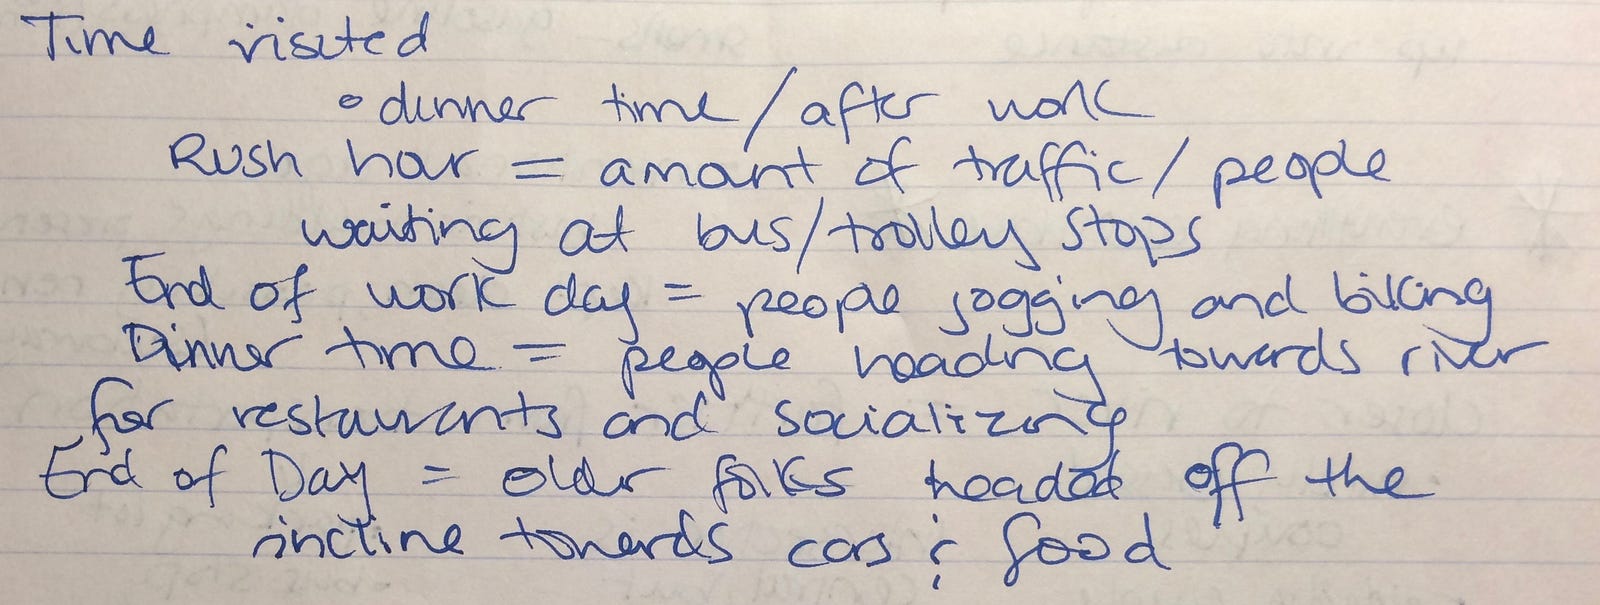 Time visited
• dinner time / after work
Rush hour = amount of traffic / people
waiting at bus/trolley stops
End of work day = people jogging and biking
Dinner time = people heading towards river
for restaurants and socializing
End of Day = older folks headed off the
incline towards cars & food